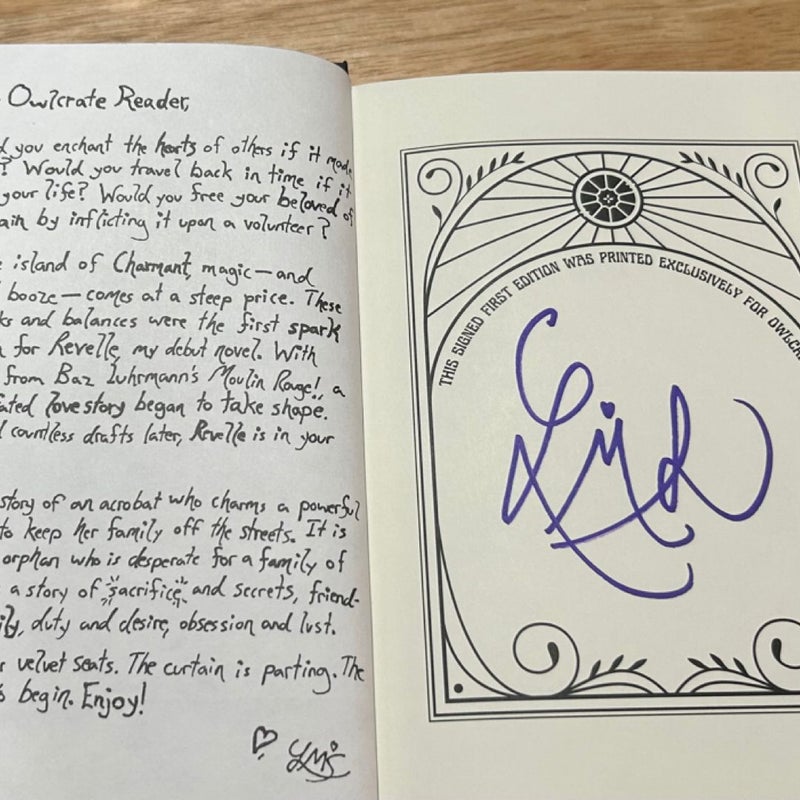 Owlcrate Reader,
you enchant the hearts of others if it made
? Would you travel back in time if it
your life? Would you free your beloved of
ain by inflicting it upon a volunteer?
island of Charmant, magic—and
booze—comes at a steep price. These
ks and balances were the first spark
for Revelle, my debut novel. With
from Baz Luhrmann's Moulin Rouge!, a
ated love story began to take shape.
countless drafts later, Revelle is in your
story of an acrobat who charms a powerful
to keep her family off the streets. It is
orphan who is desperate for a family of
a story of sacrifice and secrets, friend-
ily, duty and desire, obsession and lust.
velvet seats. The curtain is parting. The
begin. Enjoy!
LMS
THIS SIGNED FIRST EDITION WAS PRINTED EXCLUSIVELY FOR OWLCR